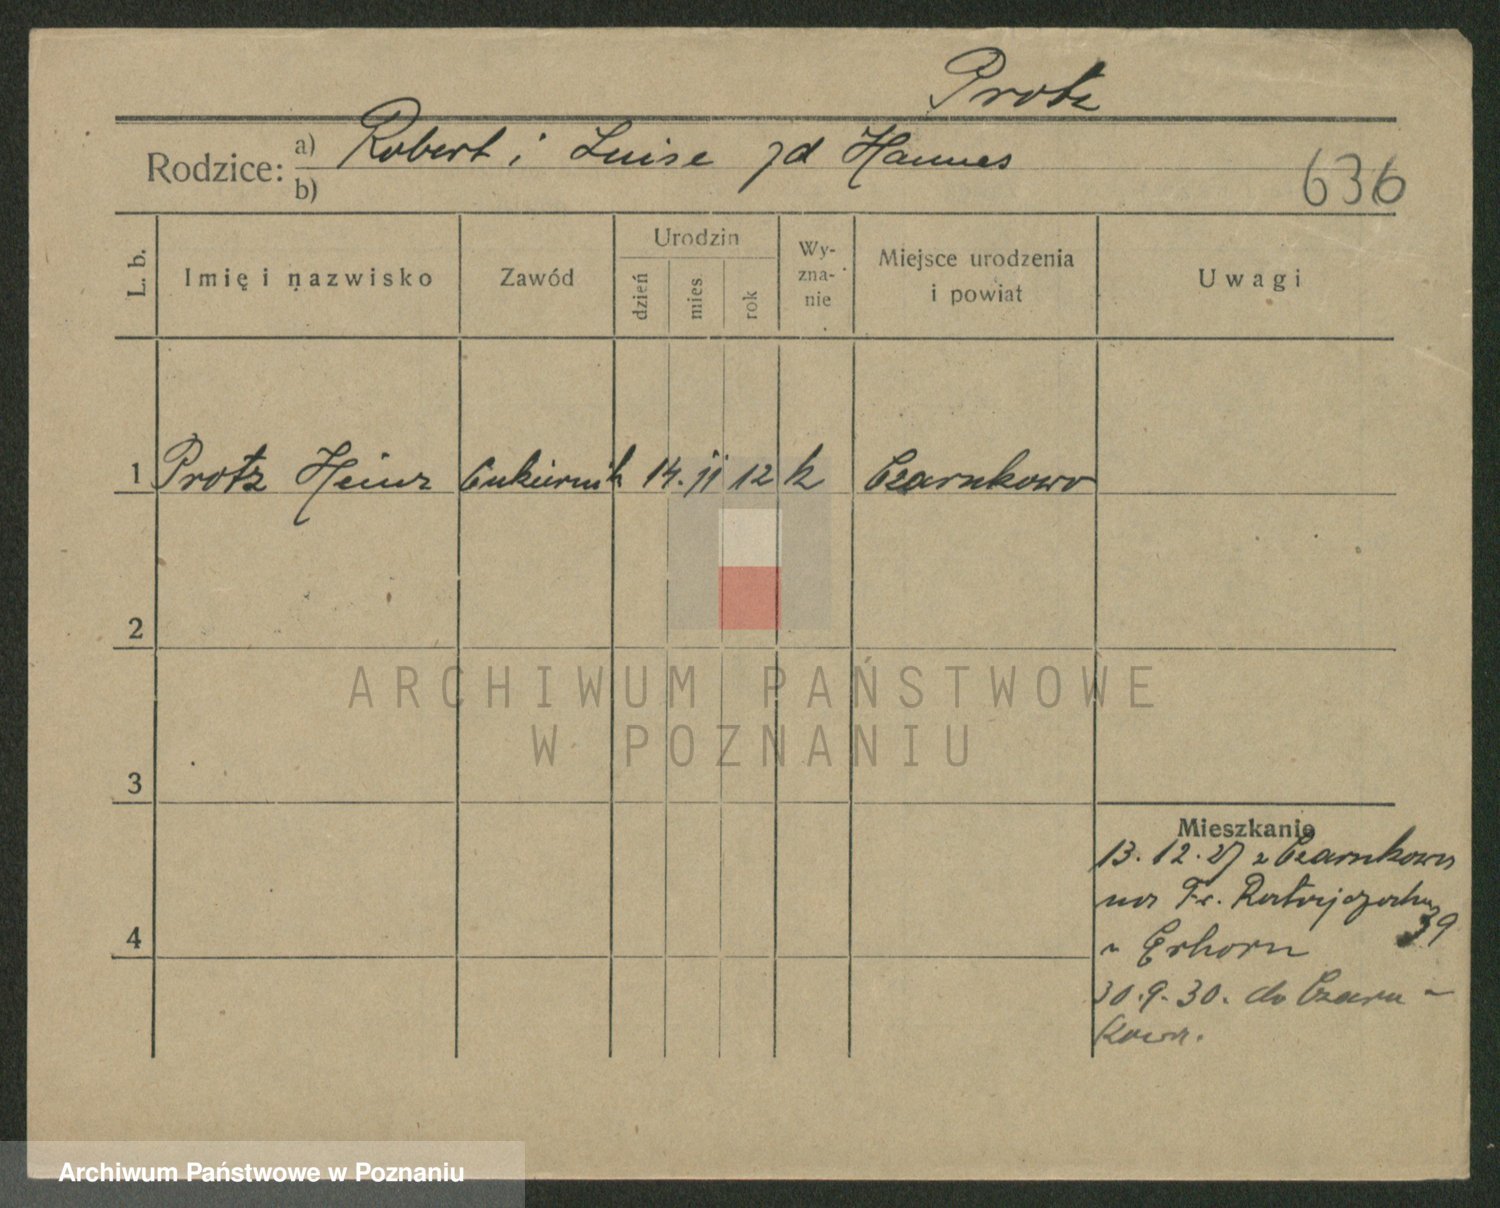 Protz
Rodzice: a) Robert i Luise zd Hannes
b)
636
L. b.
Imię i nazwisko
Zawód
Urodzin
dzień
mies
rok
Wy-
zna-
nie
Miejsce urodzenia
i powiat
Uwagi
1 Protz Heinz Cukiernik 14. 11 12 k Czarnkowo
2
3
4
Mieszkanie
13. 12. 27 z Czarnkowa
na Fr. Ratajczaka
39
u Erhorn
30. 9. 30. do Czarn-
kowa.
ARCHIWUM PAŃSTWOWE
W POZNANIU
Archiwum Państwowe w Poznaniu